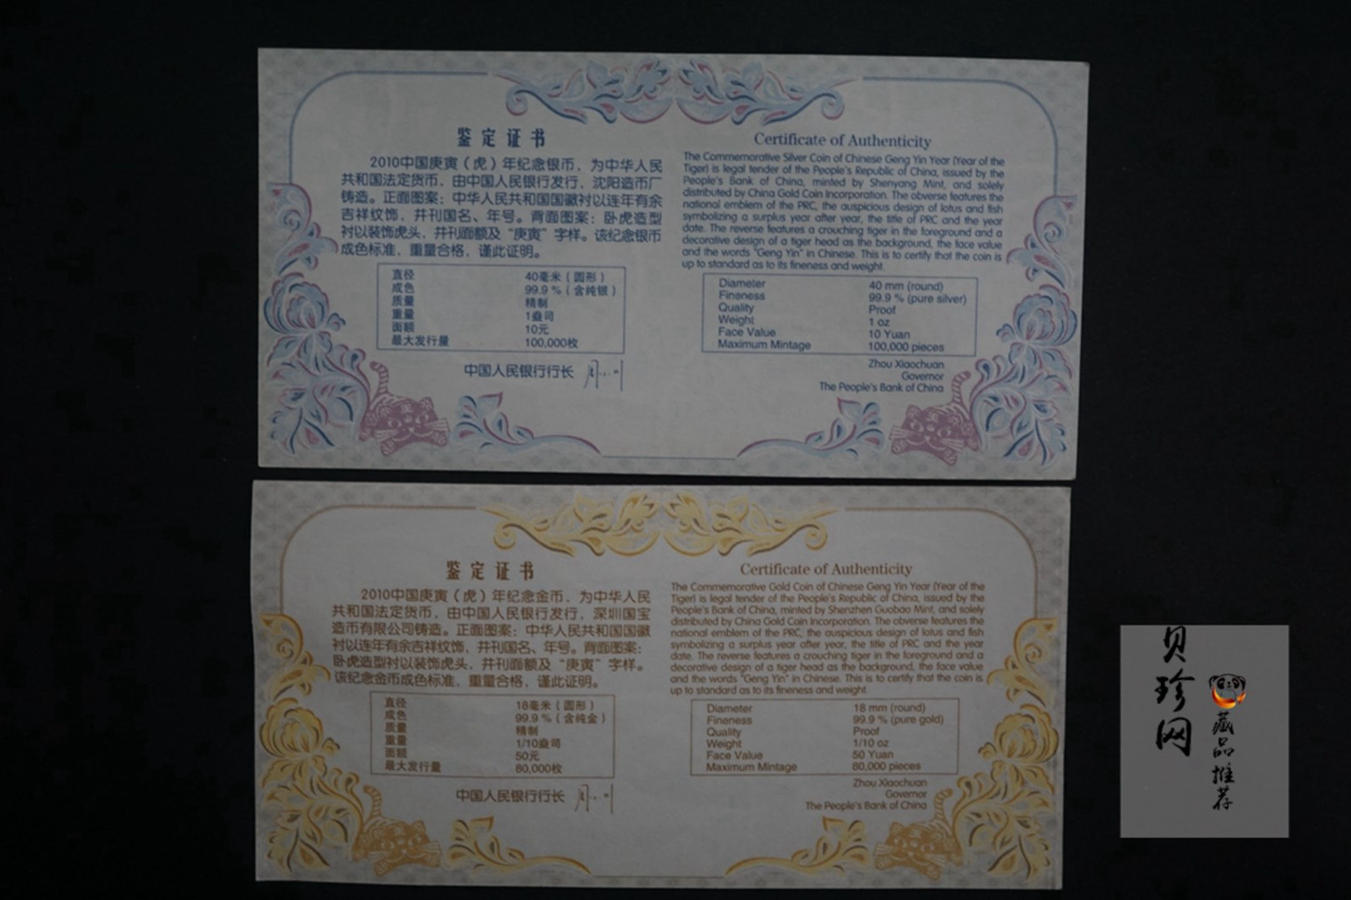 鉴定证书
2010中国庚寅（虎）年纪念银币，为中华人民
共和国法定货币，由中国人民银行发行，沈阳造币厂
铸造。正面图案：中华人民共和国国徽衬以连年有余
吉祥纹饰，并刊国名、年号。背面图案：卧虎造型
衬以装饰虎头，并刊面额及“庚寅”字样。该纪念银币
成色标准，重量合格，谨此证明。
直径 40毫米（圆形）
成色 99.9％（含纯银）
质量 精制
重量 1盎司
面额 10元
最大发行量 100,000枚
中国人民银行行长
Certificate of Authenticity
The Commemorative Silver Coin of Chinese Geng Yin Year (Year of the
Tiger) is legal tender of the People's Republic of China, issued by the
People's Bank of China, minted by Shenyang Mint, and solely
distributed by China Gold Coin Incorporation. The obverse features the
national emblem of the PRC, the auspicious design of lotus and fish
symbolizing a surplus year after year, the title of PRC and the year
date. The reverse features a crouching tiger in the foreground and a
decorative design of a tiger head as the background, the face value
and the words "Geng Yin" in Chinese. This is to certify that the coin is
up to standard as to its fineness and weight.
Diameter 40 mm (round)
Fineness 99.9 % (pure silver)
Quality Proof
Weight 1 oz
Face Value 10 Yuan
Maximum Mintage 100,000 pieces
Zhou Xiaochuan
Governor
The People's Bank of China
鉴定证书
2010中国庚寅（虎）年纪念金币，为中华人民
共和国法定货币，由中国人民银行发行，深圳国宝
造币有限公司铸造。正面图案：中华人民共和国国徽
衬以连年有余吉祥纹饰，并刊国名、年号。背面图案：
卧虎造型衬以装饰虎头，并刊面额及“庚寅”字样。
该纪念金币成色标准，重量合格，谨此证明。
直径 18毫米（圆形）
成色 99.9％（含纯金）
质量 精制
重量 1/10盎司
面额 50元
最大发行量 80,000枚
中国人民银行行长
Certificate of Authenticity
The Commemorative Gold Coin of Chinese Geng Yin Year (Year of the
Tiger) is legal tender of the People's Republic of China, issued by the
People's Bank of China, minted by Shenzhen Guobao Mint, and solely
distributed by China Gold Coin Incorporation. The obverse features the
national emblem of the PRC, the auspicious design of lotus and fish
symbolizing a surplus year after year, the title of PRC and the year
date. The reverse features a crouching tiger in the foreground and a
decorative design of a tiger head as the background, the face value
and the words "Geng Yin" in Chinese. This is to certify that the coin is
up to standard as to its fineness and weight.
Diameter 18 mm (round)
Fineness 99.9 % (pure gold)
Quality Proof
Weight 1/10 oz
Face Value 50 Yuan
Maximum Mintage 80,000 pieces
Zhou Xiaochuan
Governor
The People's Bank of China
贝珍网
藏品推荐